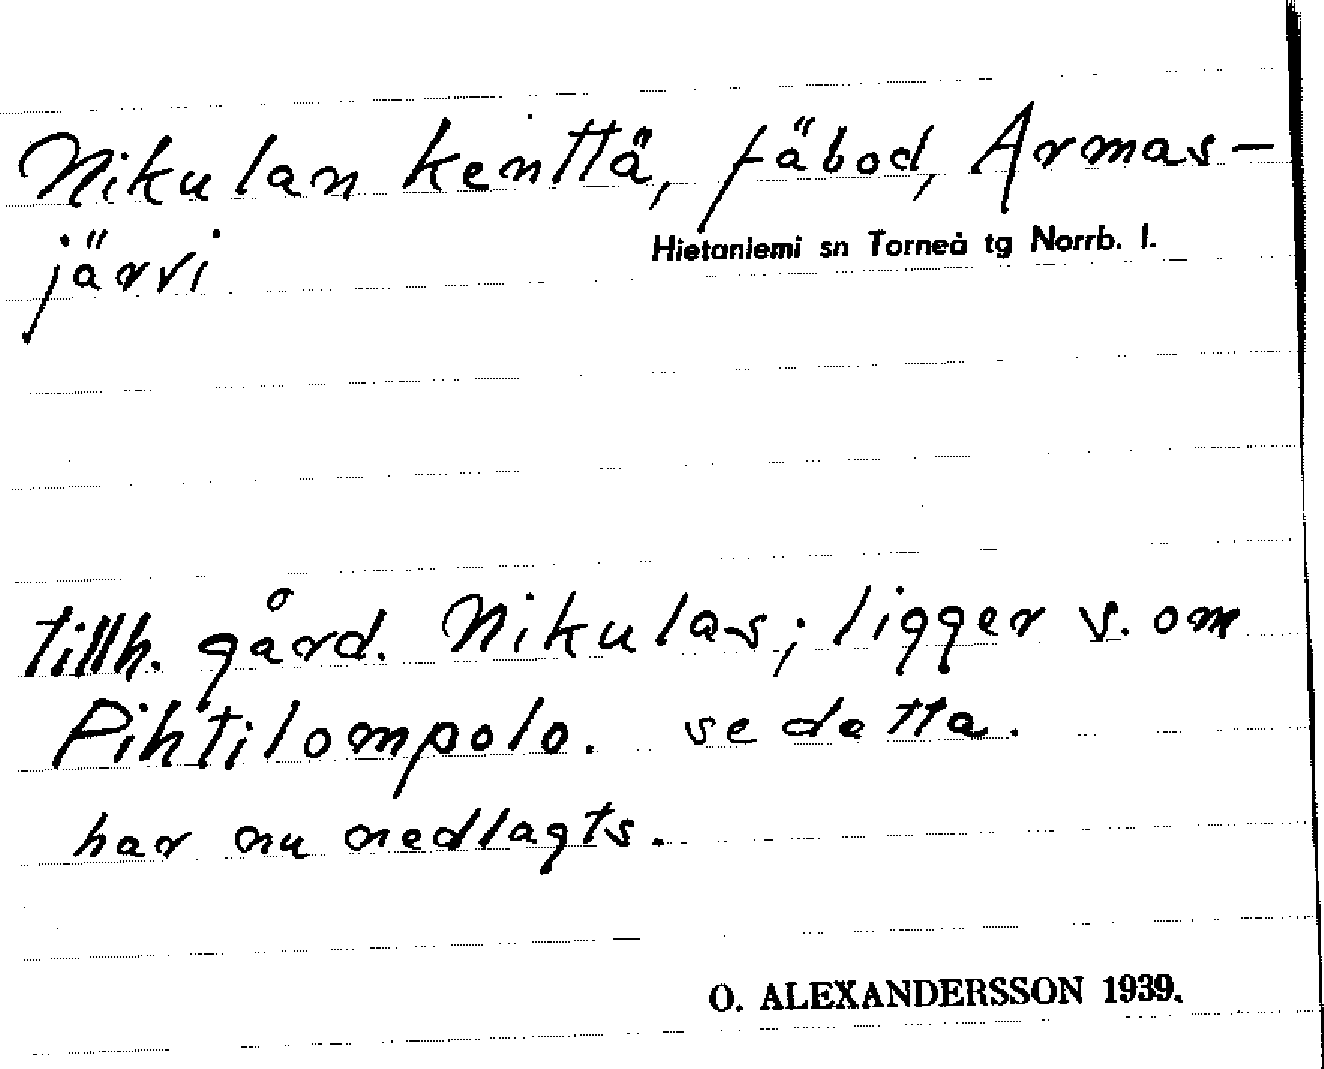 Nikulan kenttä, fäbod, Armas-
järvi
Hietaniemi sn Torneå tg Norrb. l.
tillh. gård. Nikulas; ligger v. om
Pihtilompolo. se detta.
har nu nedlagts.
O. ALEXANDERSSON 1939.